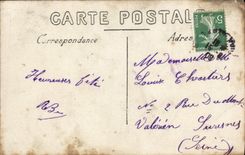 CARTE POSTALE
Correspondance
Adresse
Heureuse fête
Mademoiselle
Louise
N° 2 Rue du Mont
Valérien Suresnes
(Seine)